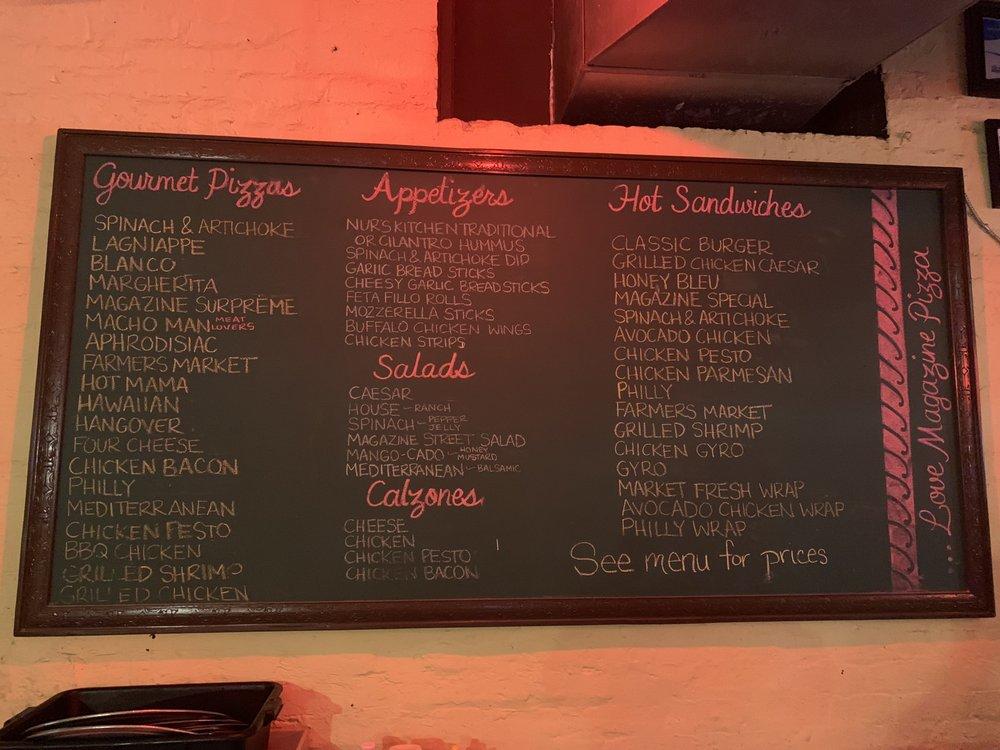 Gourmet Pizzas
SPINACH & ARTICHOKE
LAGNIAPPE
BLANCO
MARGHERITA
MAGAZINE SURPRËME
MACHO MAN MEAT LOVERS
APHRODISIAC
FARMERS MARKET
HOT MAMA
HAWAIIAN
HANGOVER
FOUR CHEESE
CHICKEN BACON
PHILLY
MEDITERRANEAN
CHICKEN PESTO
BBQ CHICKEN
GRILLED SHRIMP
GRILLED CHICKEN
Appetizers
NUR'S KITCHEN TRADITIONAL
OR CILANTRO HUMMUS
SPINACH & ARTICHOKE DIP
GARLIC BREAD STICKS
CHEESY GARLIC BREAD STICKS
FETA FILLO ROLLS
MOZZERELLA STICKS
BUFFALO CHICKEN WINGS
CHICKEN STRIPS
Salads
CAESAR
HOUSE - RANCH
SPINACH - PEPPER JELLY
MAGAZINE STREET SALAD
MANGO-CADO - HONEY MUSTARD
MEDITERRANEAN - BALSAMIC
Calzones
CHEESE
CHICKEN
CHICKEN PESTO
CHICKEN BACON
Hot Sandwiches
CLASSIC BURGER
GRILLED CHICKEN CAESAR
HONEY BLEU
MAGAZINE SPECIAL
SPINACH & ARTICHOKE
AVOCADO CHICKEN
CHICKEN PESTO
CHICKEN PARMESAN
PHILLY
FARMERS MARKET
GRILLED SHRIMP
CHICKEN GYRO
GYRO
MARKET FRESH WRAP
AVOCADO CHICKEN WRAP
PHILLY WRAP
See menu for prices
... Love Magazine Pizza